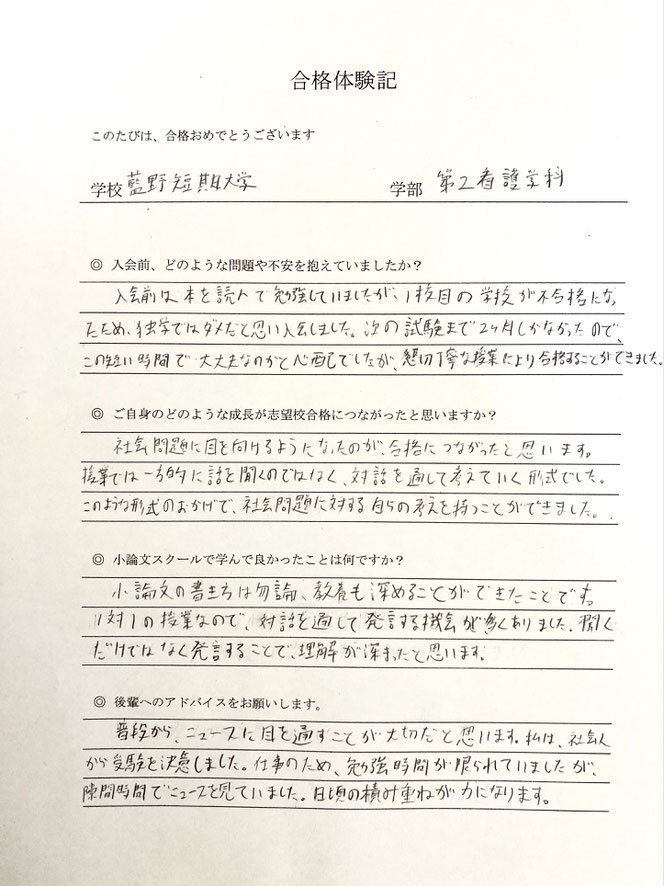 合格体験記
このたびは、合格おめでとうございます
学校 藍野短期大学 学部 第2看護学科
◎ 入会前、どのような問題や不安を抱えていましたか？
入会前は本を読んで勉強していましたが、1校目の学校が不合格にな
たため、独学ではダメだと思い入会しました。次の試験まで2ヶ月しかなかったので、
この短い時間で大丈夫なのかと心配でしたが、懇切丁寧な授業により合格することができました。
◎ ご自身のどのような成長が志望校合格につながったと思いますか？
社会問題に目を向けるようになったのが、合格につながったと思います。
授業では一方的に話を聞くのではなく、対話を通して考えていく形式でした。
このような形式のおかげで、社会問題に対する自らの考えを持つことができました。
◎ 小論文スクールで学んで良かったことは何ですか？
小論文の書き方は勿論、教養も深めることができたことです。
1対1の授業なので、対話を通して発言する機会が多くありました。聞く
だけではなく発言することで、理解が深まったと思います。
◎ 後輩へのアドバイスをお願いします。
普段から、ニュースに目を通すことが大切だと思います。私は、社会人
から受験を決意しました。仕事のため、勉強時間が限られていましたが、
隙間時間でニュースを見ていました。日頃の積み重ねが力になります。